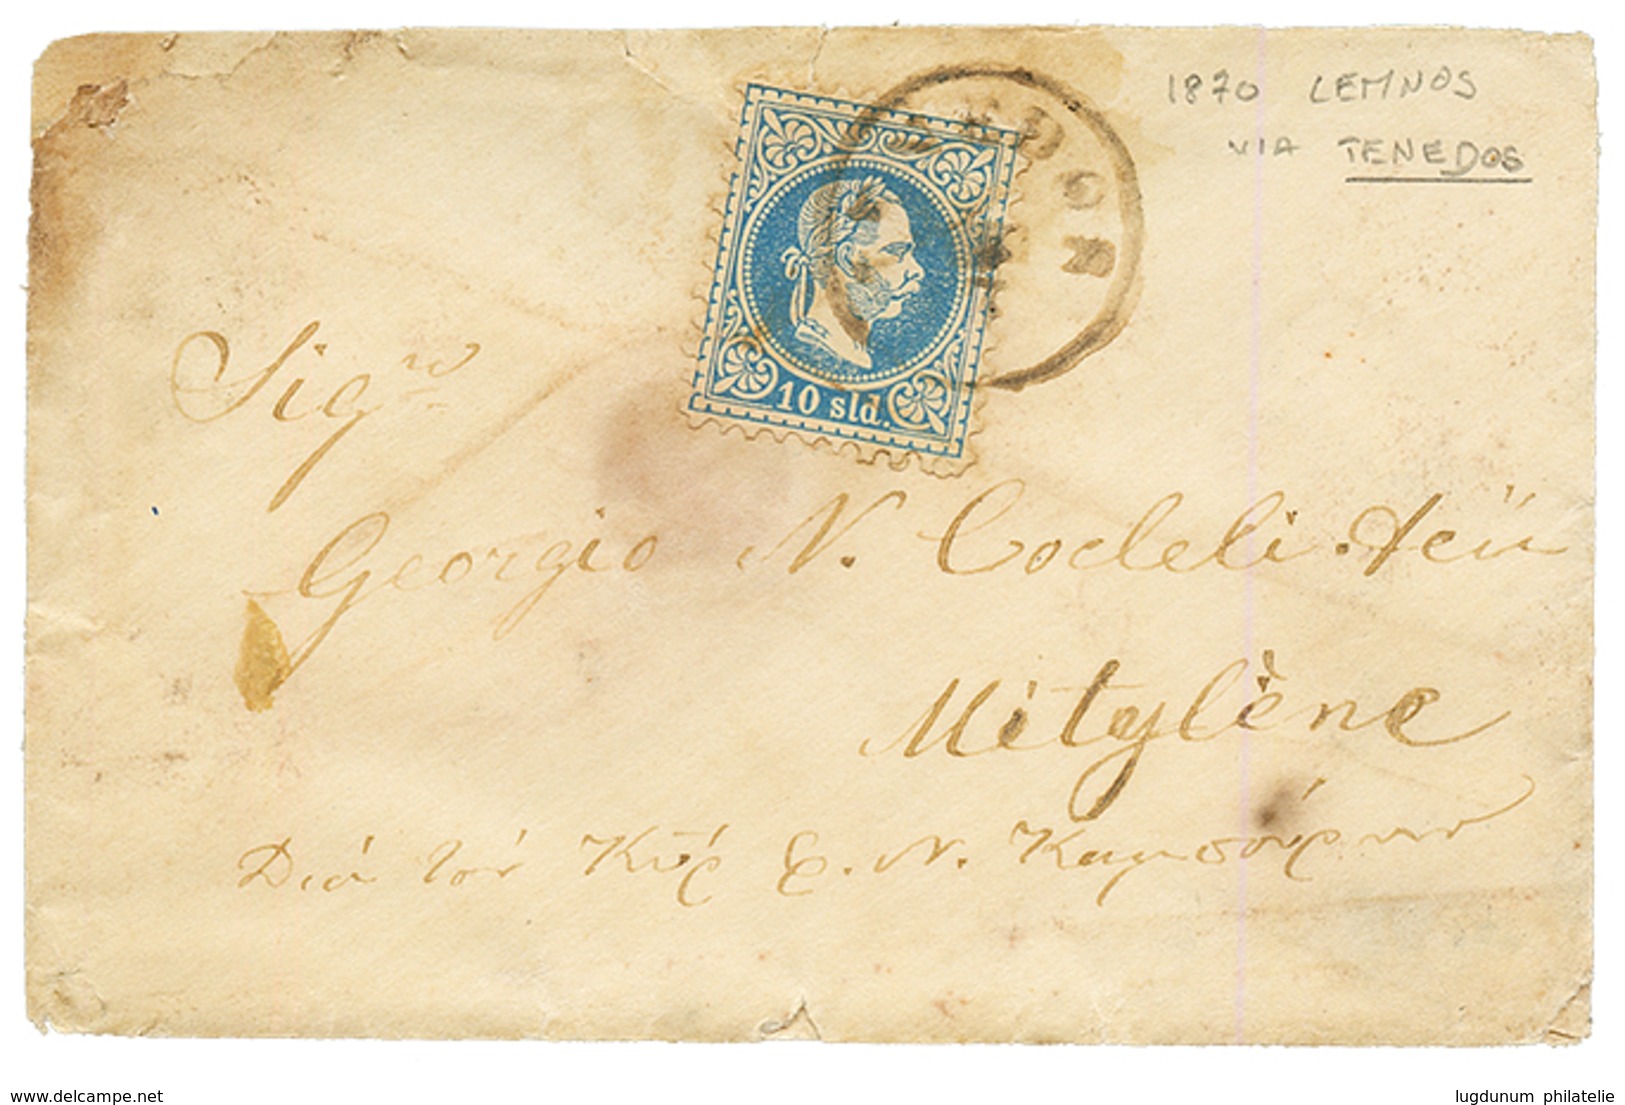 1870 LEMNOS
VIA TENEDOS
10 sld.
Sigr
Georgio N. Codeli
Mitylène
Διά τόν Κύρ N.
www.delcampe.net
lugdunum philatelie